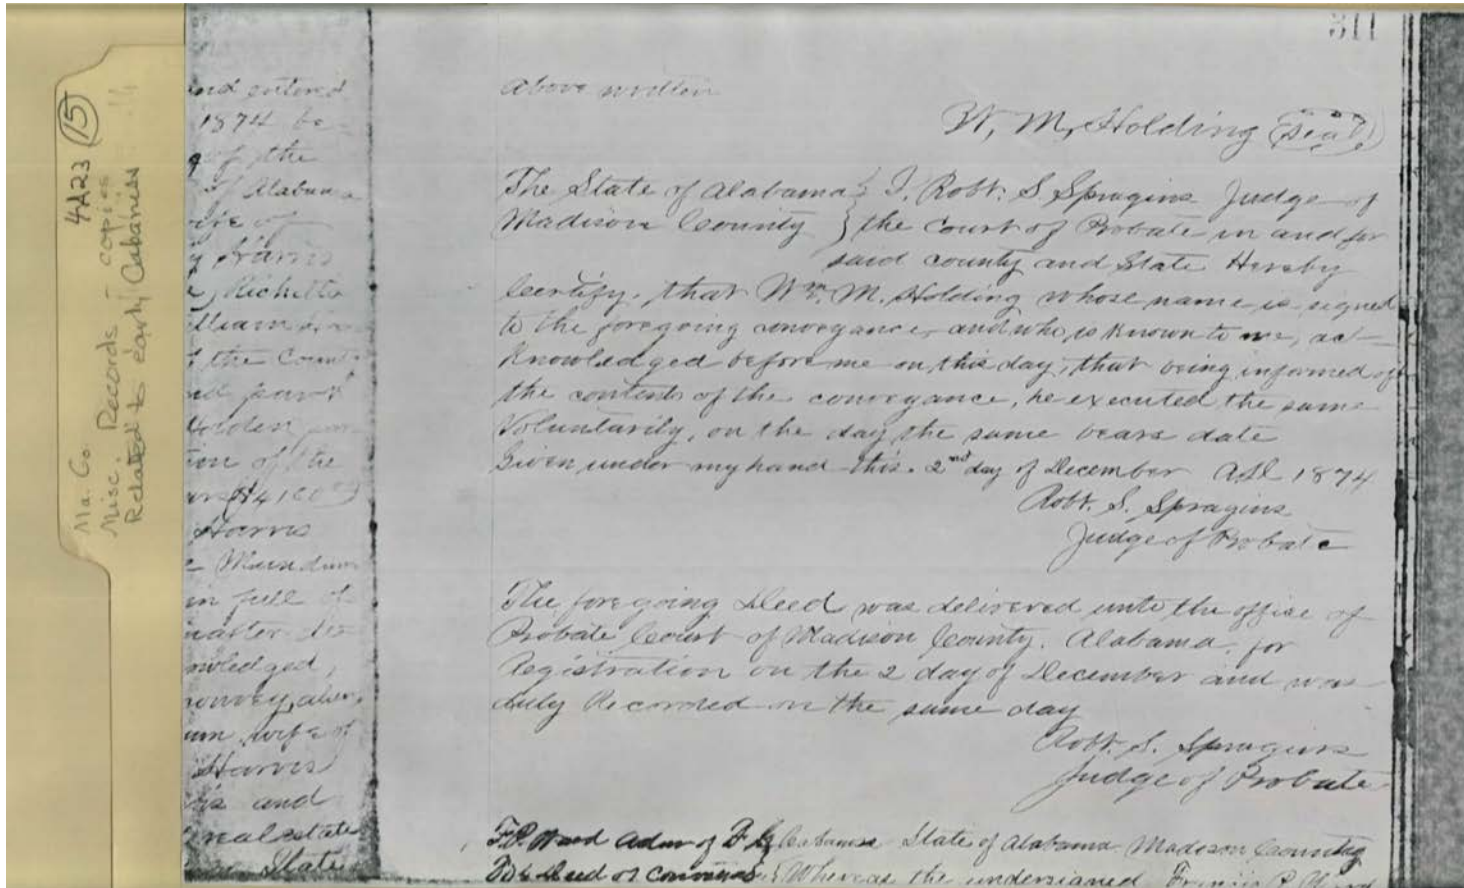 4A23 (15)
Ma. Co.
Misc. Records - copies
Related to early Cabaniss
and entered
1874 be
of the
of Alabam
wife of
Harris
Ricketts
William
the County
Holden
of the
Harris
in full of
wledged,
convey, alien,
wife of
Harris
and
real estate
State
311
above written
W, M, Holding (Seal)
The State of Alabama } I. Robt. S Spragins Judge of
Madison County } the Court of Probate in and for
said county and State Hereby
Certify, that Wm. M. Holding whose name is signed
to the foregoing conveyance, and who is known to me, ac-
knowledged before me on this day, that being informed of
the contents of the conveyance, he executed the same
Voluntarily, on the day the same bears date
Given under my hand this. 2nd day of December AD 1874
Robt. S. Spragins
Judge of Probate
The foregoing Deed was delivered unto the office of
Probate Court of Madison County. Alabama, for
Registration on the 2 day of December and was
duly Recorded on the same day
Robt. S. Spragins
Judge of Probate
F.P. Ward Admr of Cabaniss State of Alabama Madison County
Deed of Whereas the undersigned Francis P. Ward